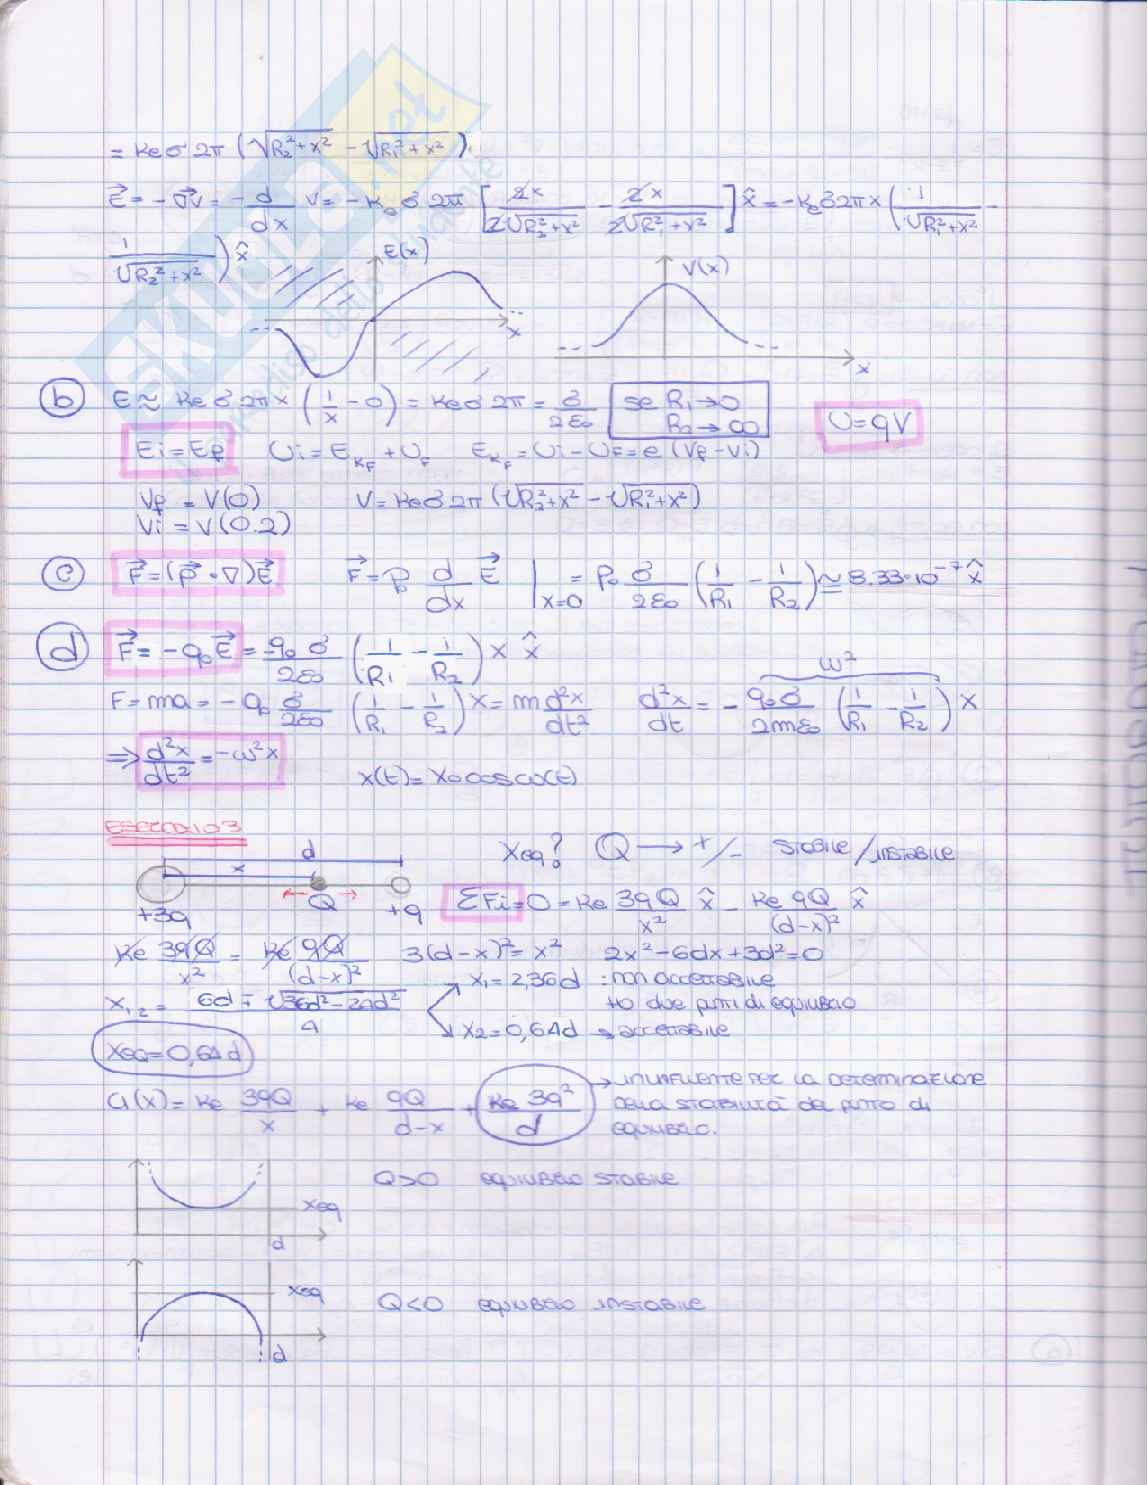 = Ke σ 2π (√R₂²+x² - √R₁²+x²)
E⃗ = -∇⃗V = - d/dx V = -Ke σ 2π [2x/2√R₂²+x² - 2x/2√R₁²+x²] x̂ = -Ke σ 2π x (1/√R₁²+x² -
1/√R₂²+x²) x̂
E(x)
V(x)
x
x
b E ≈ Ke σ 2π x (1/x - 0) = Ke σ 2π = σ/2ε₀ se R₁→0
R₂→∞
U=qV
Ei=Ef Ui = EKF + UF EKF = Ui - UF = e (Vf - Vi)
Vf = V(0) V = Ke σ 2π (√R₂²+x² - √R₁²+x²)
Vi = V(0.2)
c F⃗=(p⃗·∇)E⃗ F⃗ = p₀ d/dx E⃗ |x=0 = p₀ σ/2ε₀ (1/R₁ - 1/R₂) ≃ 8.33·10⁻⁷ x̂
d F⃗ = -q₀E⃗ = -q₀σ/2ε₀ (1/R₁ - 1/R₂) x x̂
ω²
F = ma = -q₀ σ/2ε₀ (1/R₁ - 1/R₂) x = m d²x/dt² d²x/dt = - q₀σ/2mε₀ (1/R₁ - 1/R₂) x
⇒ d²x/dt² = -ω²x x(t) = x₀ cos ω(t)
ESERCIZIO 3
d
x
Xeq? Q → +/- STABILE/INSTABILE
+3q Q +q
ΣFi = 0 = Ke 3qQ/x² x̂ - Ke qQ/(d-x)² x̂
Ke 3qQ/x² = Ke qQ/(d-x)² 3(d-x)² = x² 2x²-6dx+3d²=0
x₁,₂ = 6d ∓ √36d²-24d² / 4
x₁ = 2,36d : non accettabile
tra due punti di equilibrio
x₂ = 0,64d → accettabile
Xeq = 0,64d
U(x) = Ke 3qQ/x + Ke qQ/d-x + Ke 3q²/d → ININFLUENTE PER LA DETERMINAZIONE
DELLA STABILITÀ DEL PUNTO DI
EQUILIBRIO.
Q>0 EQUILIBRIO STABILE
Xeq
d
Xeq
Q<0 EQUILIBRIO INSTABILE
d